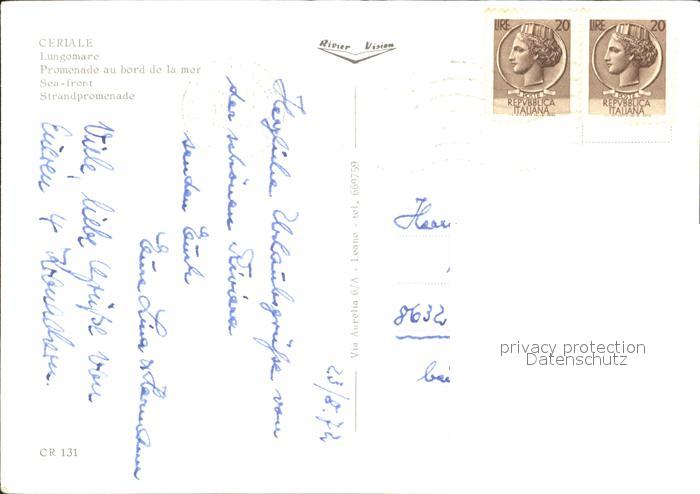 CERIALE
Lungomare
Promenade au bord de la mer
Sea-front
Strandpromenade
Rivier Vision
LIRE 20
POSTE
REPVBBLICA
ITALIANA
LIRE 20
POSTE
REPVBBLICA
ITALIANA
23/8.72
Herzliche Urlaubsgrüße von
der schönen Riviera
senden Euch
Eure Lina & Hermann
Viele, liebe Grüße von
Via Aurelia 6/A - Loano - tel. 669759
Herr
8632
bei
privacy protection
Datenschutz
CR 131